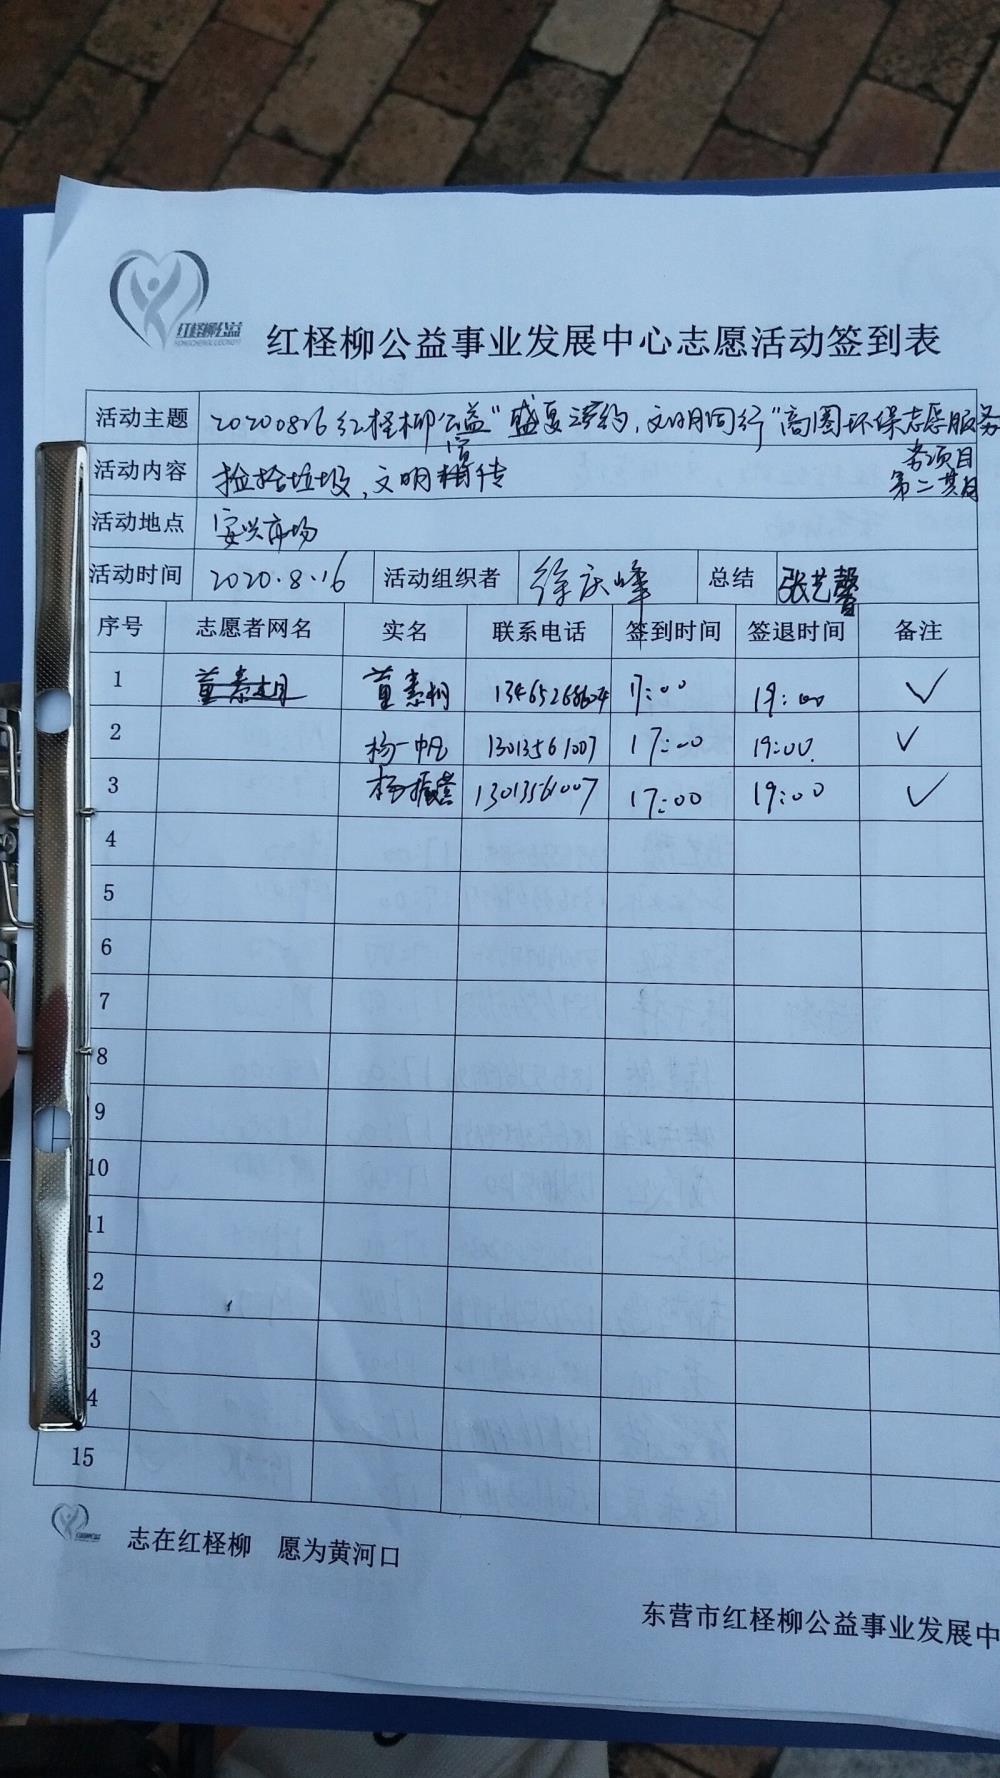 红柽柳公益
红柽柳公益事业发展中心志愿活动签到表
活动主题 20200816红柽柳公益"盛夏之约,文明同行"商圈环保志愿服务
务项目
第二期
活动内容 捡拾垃圾,文明宣传
活动地点 安兴市场
活动时间 2020.8.16 活动组织者 徐庆峰 总结 张艺馨
序号 志愿者网名 实名 联系电话 签到时间 签退时间 备注
1 董 17:00 19:00 ✓
2 杨一帆 13013561007 17:00 19:00 ✓
3 杨振 13013561007 17:00 19:00 ✓
4
5
6
7
8
9
10
11
12
13
14
15
志在红柽柳 愿为黄河口
东营市红柽柳公益事业发展中